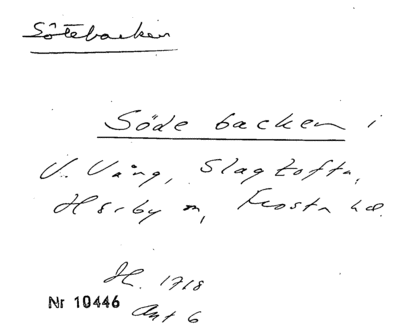 Sötebacken
Söde backen i
V. Vång, Slagtofta,
Hörby sn, Frosta hd.
H. 1718
Nr 10446
Ant 6